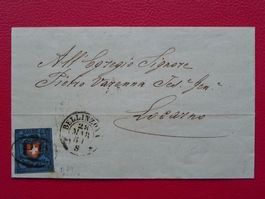 All' Egregio Signore
Pietro Varenna Tes. Gen.
Locarno
BELLINZONA
28
MAR
51